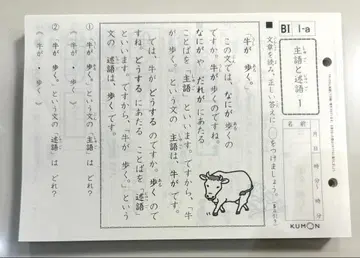 BI 1-a
主語と述語 1
名前
月 日
時 分
時 分
文章を読み、正しい答えに○をつけましょう。
「牛が 歩く。」
この文では、なにが 歩くの
ですか。牛が 歩くのですね。
なにがや だれが にあたる
ことばを「主語」といいます。ですから、「牛
が 歩く。」という文の 主語は、牛がです。
では、牛が どうするのですか。歩くので
すね。どうする にあたる ことばを「述語」
といいます。ですから、「牛が 歩く。」という
文の 述語は、歩くです。
① 「牛が 歩く。」という文の「主語」は どれ?
( 牛が ・ 歩く )
② 「牛が 歩く。」という文の「述語」は どれ?
( 牛が ・ 歩く )
KUMON